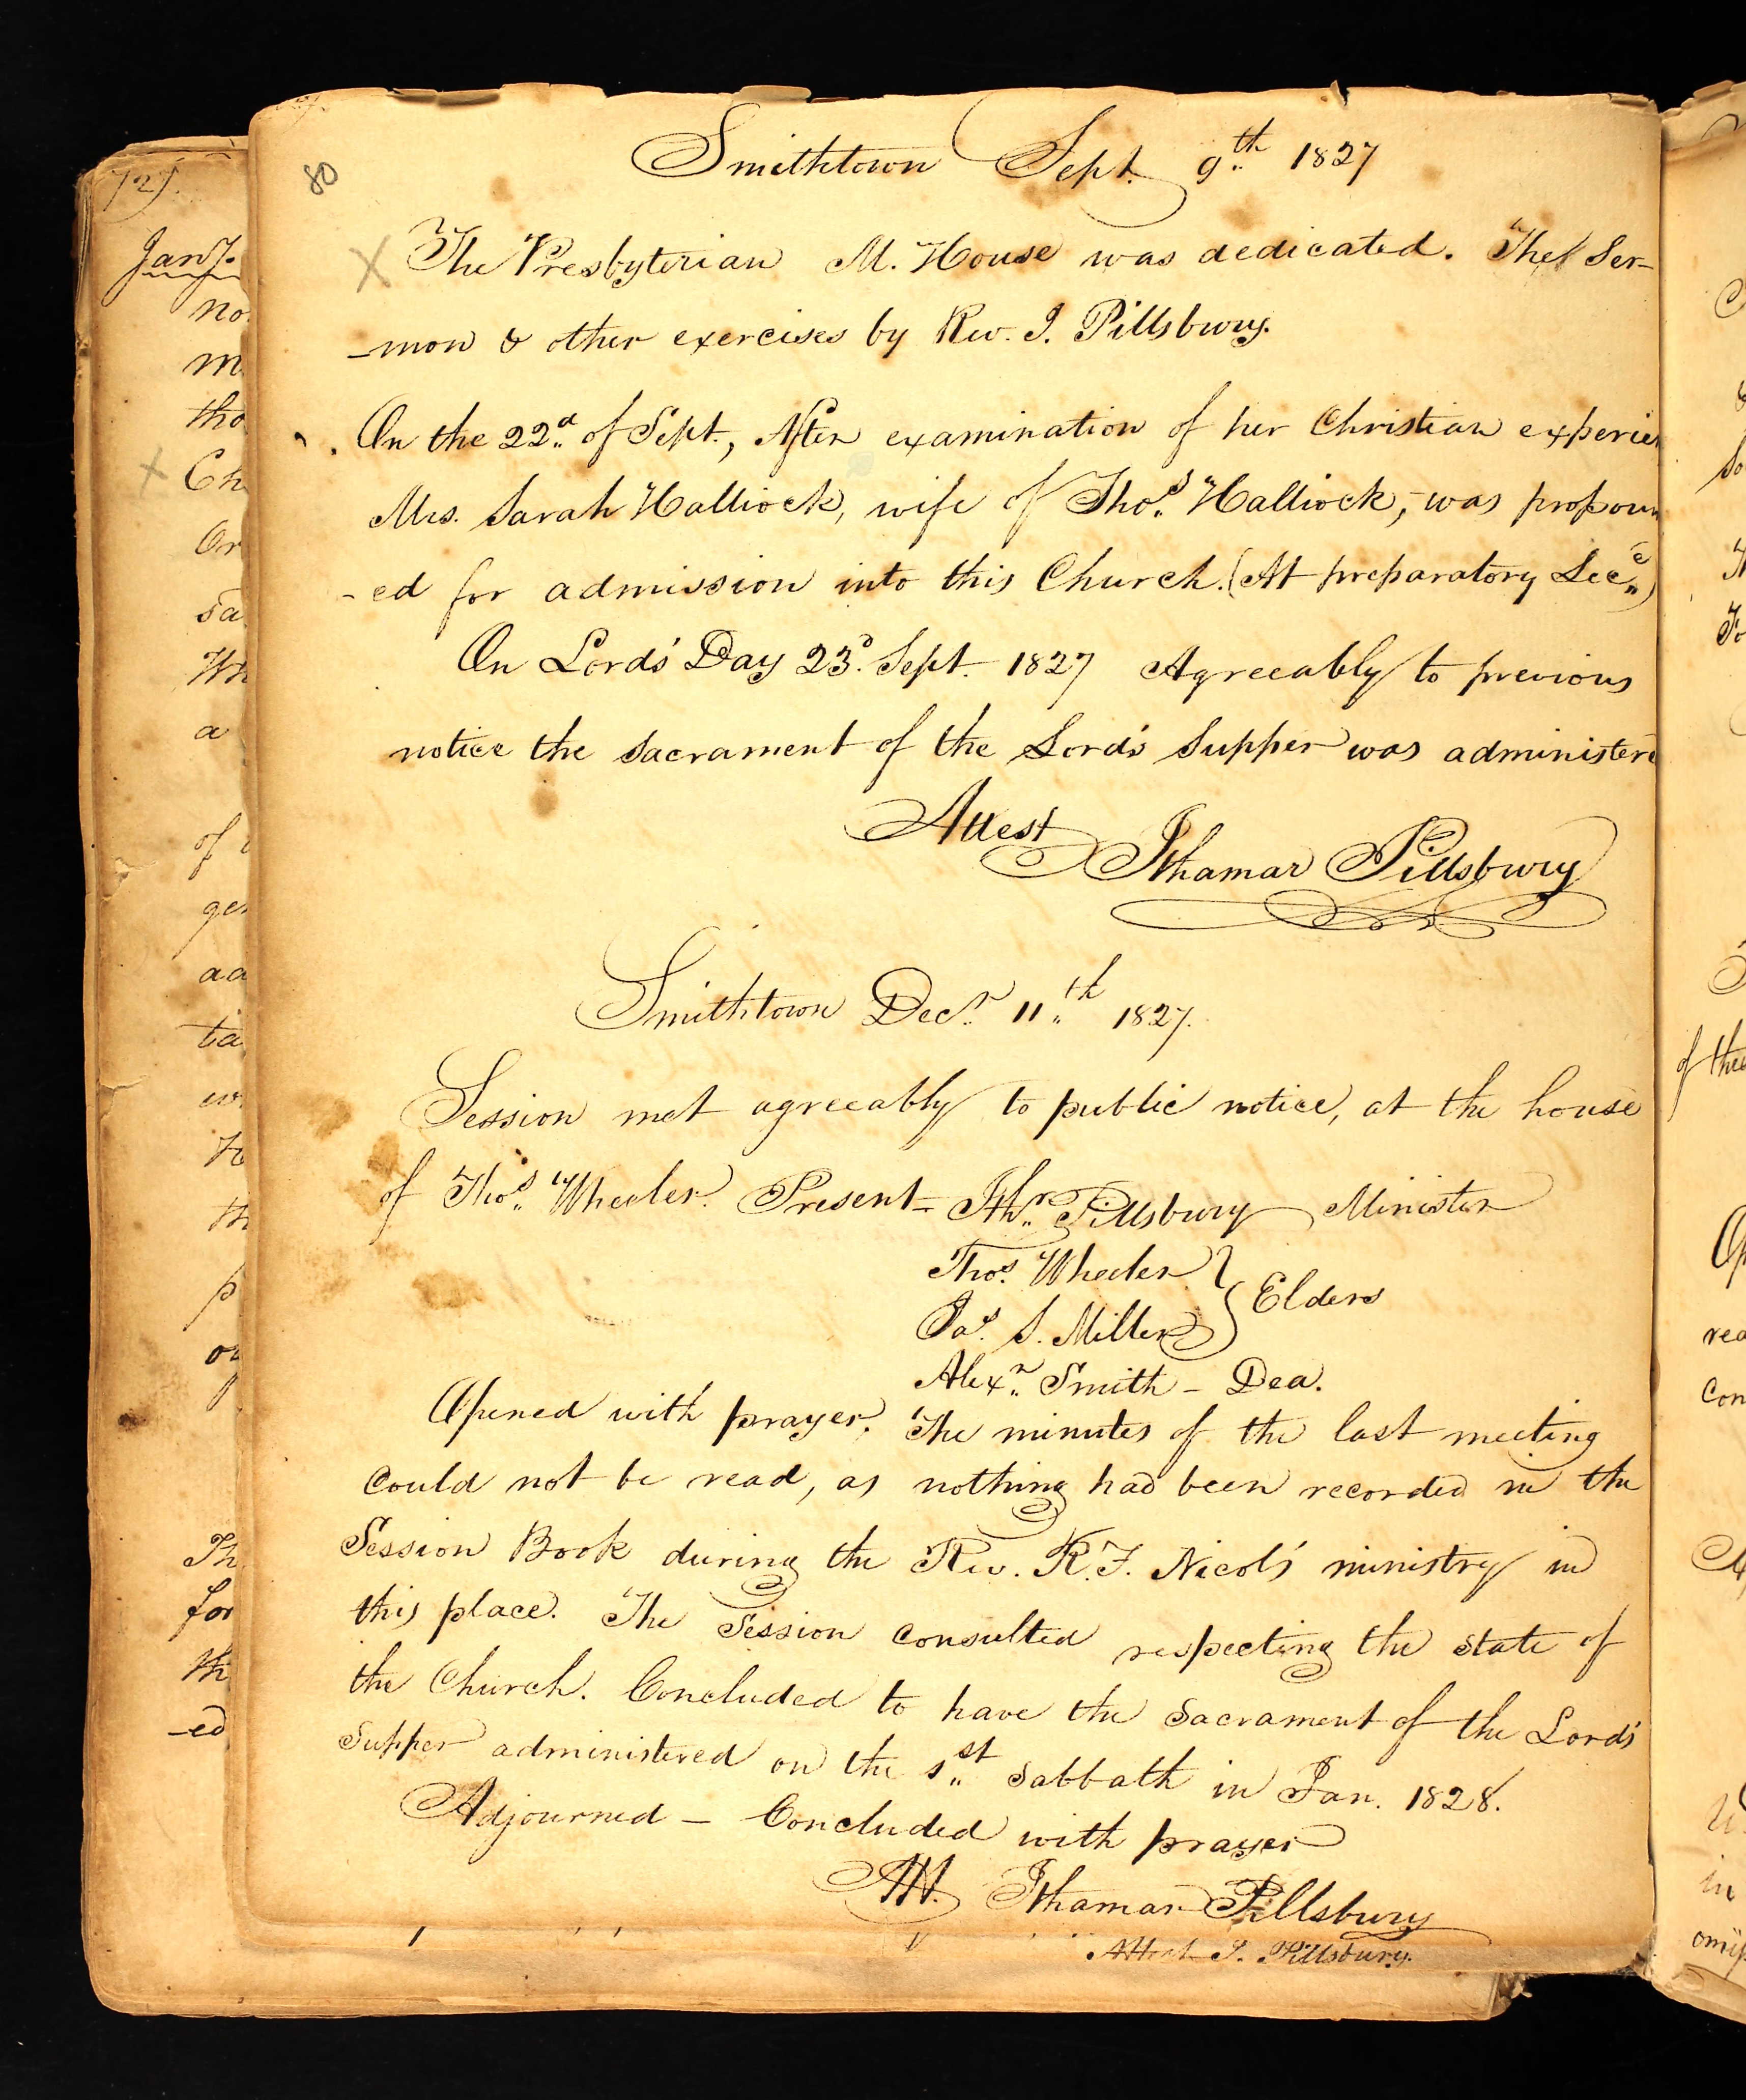 80
Smithtown Sept. 9th 1827
X The Presbyterian M. House was dedicated. The Ser-
-mon & other exercises by Rev. I. Pillsbury.
On the 22d of Sept., After examination of her Christian experien
Mrs. Sarah Halliock, wife of Thos. Halliock, was propoun
-ed for admission into this Church. (At preparatory Lece)
On Lord's Day 23d. Sept. 1827 Agreeably to previous
notice the Sacrament of the Lord's Supper was administere
Attest
Ithamar Pillsbury
Smithtown Decr. 11th 1827.
Session met agreeably to public notice, at the house
of Thos. Wheeler. Present - Ithr. Pillsbury Minister
Thos. Wheeler
Jas. S. Miller } Elders
Alexr. Smith - Dea.
Opened with prayer. The minutes of the last meeting
could not be read, as nothing had been recorded in the
Session Book during the Rev. R. F. Nicol's ministry in
this place. The Session consulted respecting the state of
the Church. Concluded to have the Sacrament of the Lord's
Supper administered on the 1st Sabbath in Jan. 1828.
Adjourned - Concluded with prayer
Att. Ithamar Pillsbury
Attest I. Pillsbury.
Jany.
no
m
tho
X Ch
Or
sa
Wh
a
of
ge
aa
tia
th
p
or
Th
for
th
-ed
of the
rea
Con
in